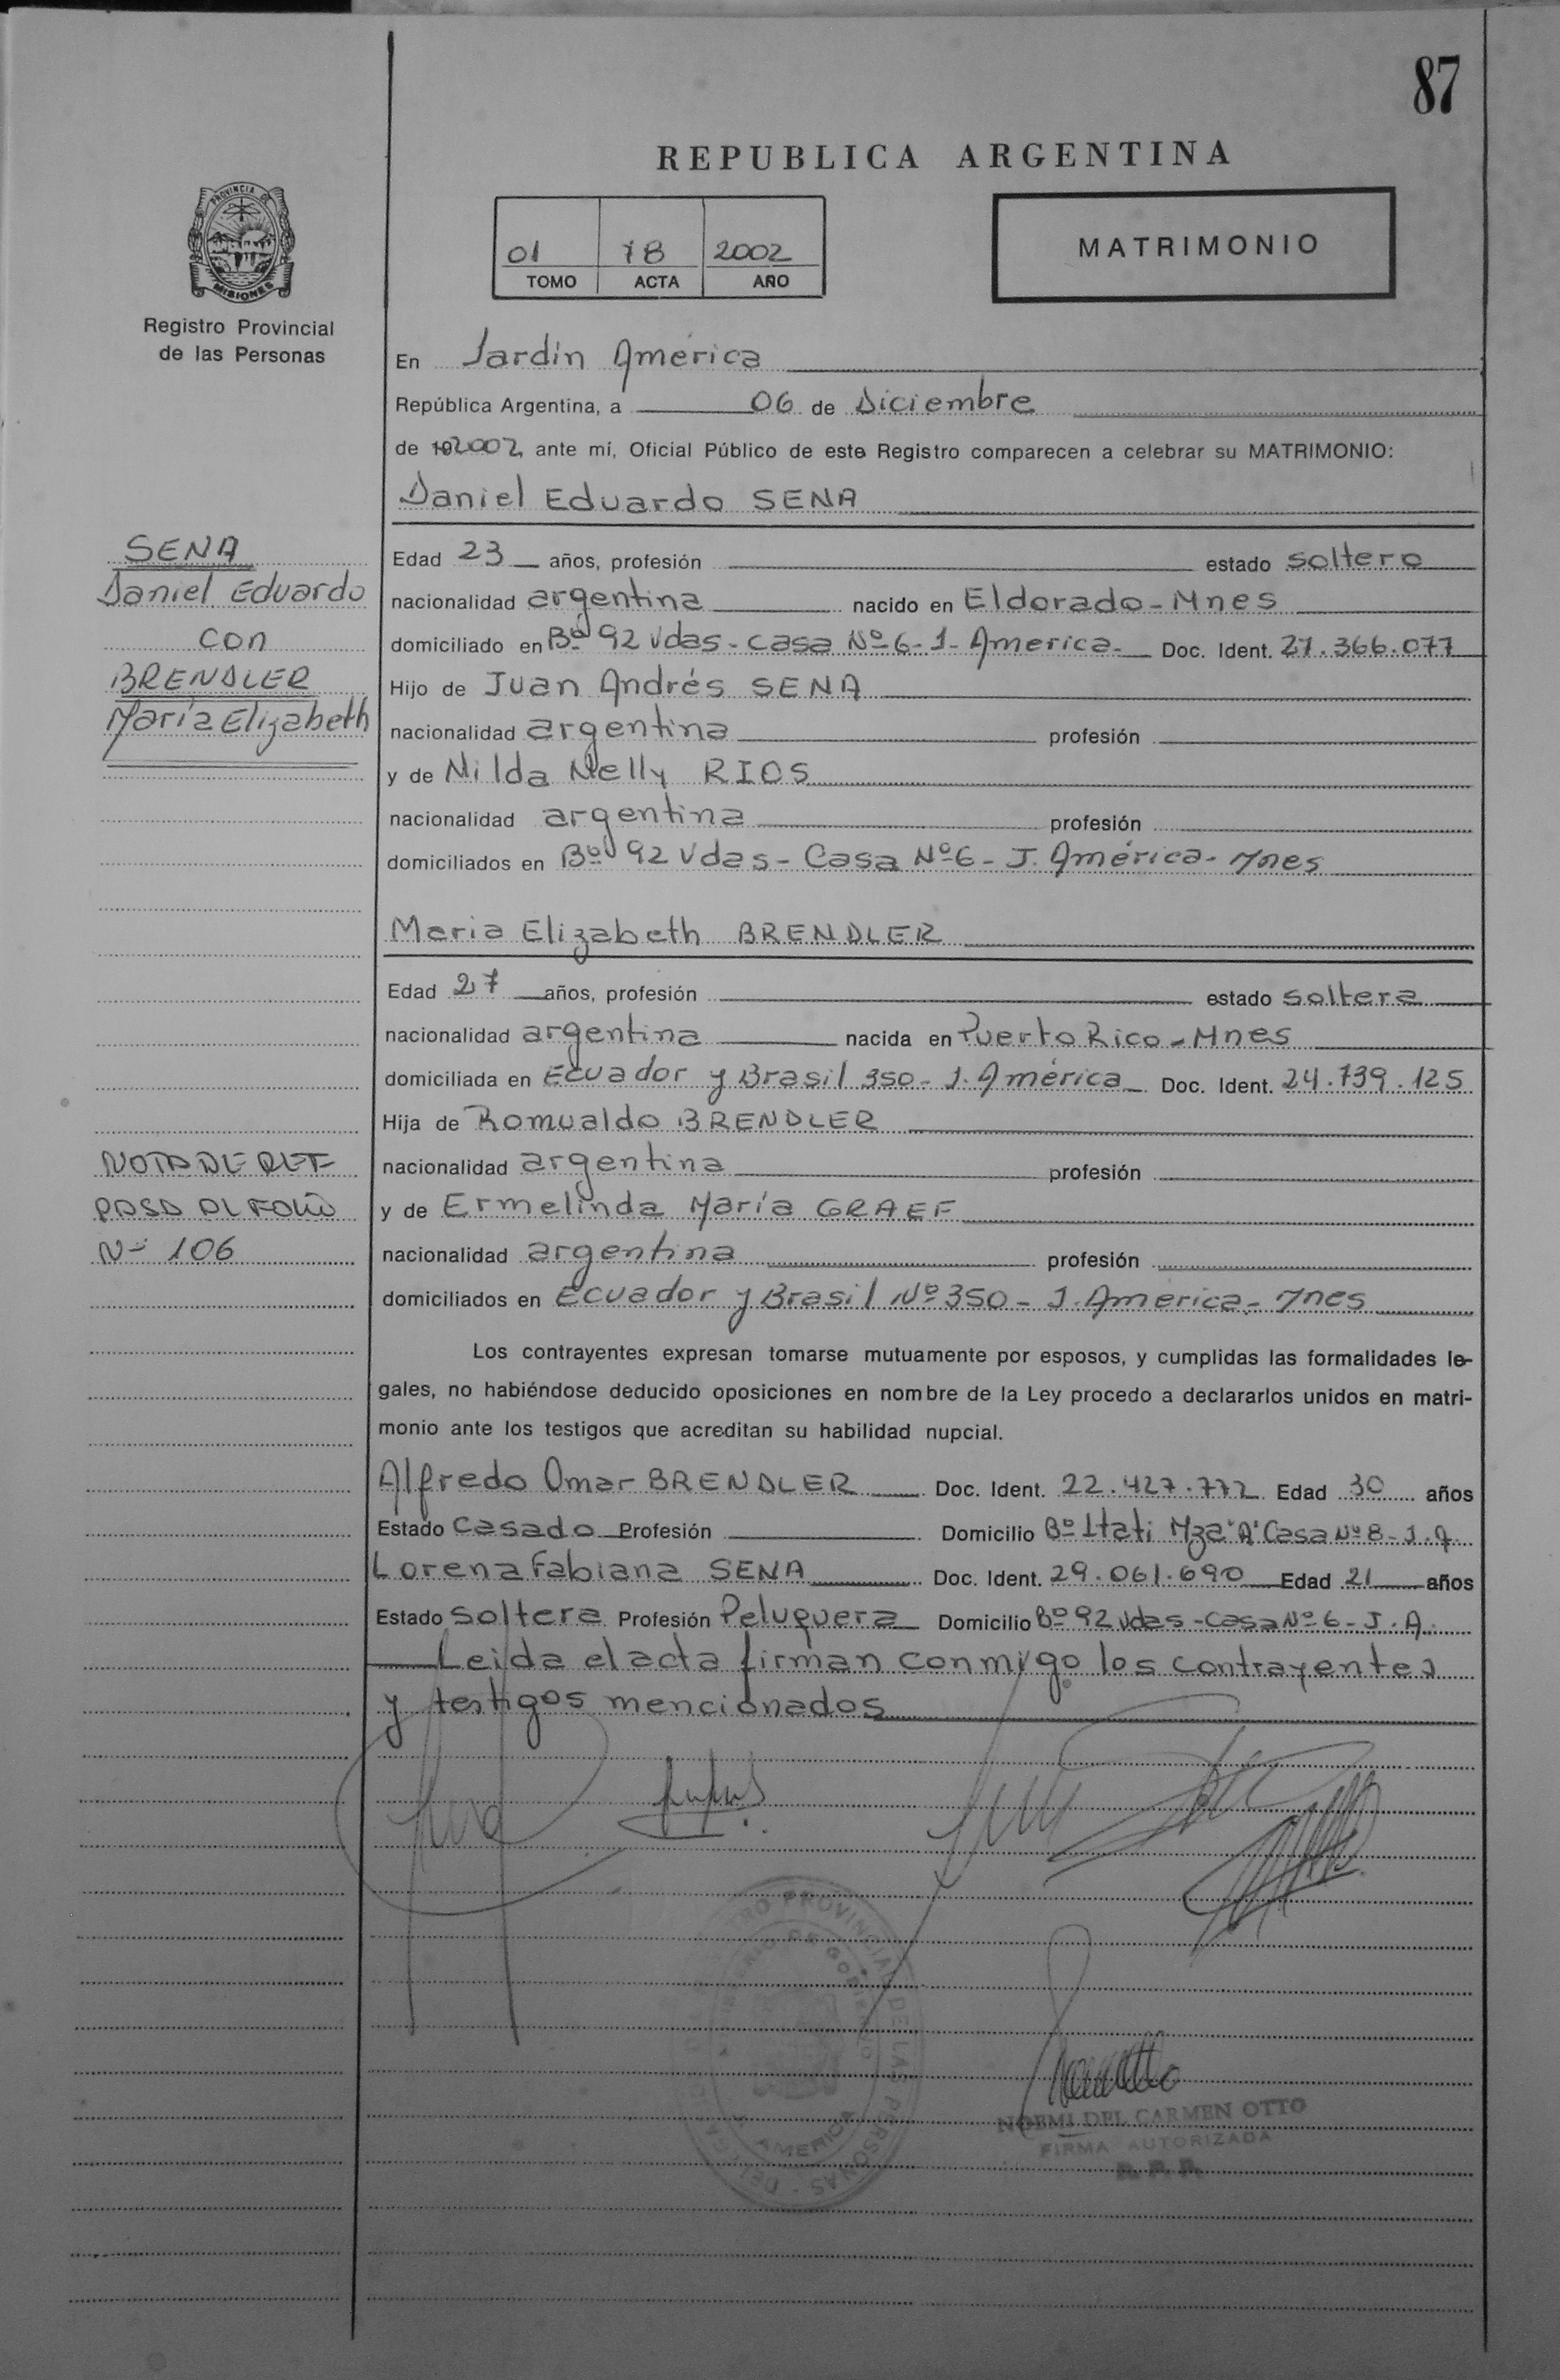 87
REPUBLICA ARGENTINA
PROVINCIA DE
MISIONES
01 78 2002
TOMO ACTA AÑO
MATRIMONIO
Registro Provincial
de las Personas
En Jardín América
República Argentina, a 06 de Diciembre
de 2002, ante mí, Oficial Público de este Registro comparecen a celebrar su MATRIMONIO:
Daniel Eduardo SENA
SENA
Daniel Eduardo
con
BRENDLER
María Elizabeth
Edad 23 años, profesión estado soltero
nacionalidad argentina nacido en Eldorado - Mnes
domiciliado en Bº 92 Vdas - casa Nº 6 - J - America - Doc. Ident. 27.366.077
Hijo de Juan Andrés SENA
nacionalidad argentina profesión
y de Nilda Nelly RIOS
nacionalidad argentina profesión
domiciliados en Bº 92 Vdas - Casa Nº 6 - J. América - Mnes
Maria Elizabeth BRENDLER
Edad 27 años, profesión estado soltera
nacionalidad argentina nacida en Puerto Rico - Mnes
domiciliada en Ecuador y Brasil 350 - J. América Doc. Ident. 24.739.125
Hija de Romualdo BRENDLER
nacionalidad argentina profesión
y de Ermelinda María GRAEF
nacionalidad argentina profesión
domiciliados en Ecuador y Brasil Nº 350 - J. America - Mnes
NOTA DE REF
PASA AL FOLIO
Nº 106
Los contrayentes expresan tomarse mutuamente por esposos, y cumplidas las formalidades le-
gales, no habiéndose deducido oposiciones en nombre de la Ley procedo a declararlos unidos en matri-
monio ante los testigos que acreditan su habilidad nupcial.
Alfredo Omar BRENDLER Doc. Ident. 22.427.772 Edad 30 años
Estado Casado Profesión Domicilio Bº Itati Mza "A" Casa Nº 8 - J.A.
Lorena Fabiana SENA Doc. Ident. 29.061.690 Edad 21 años
Estado Soltera Profesión Peluquera Domicilio Bº 92 Vdas - Casa Nº 6 - J.A.
Leida el acta firman conmigo los contrayentes
y testigos mencionados
REGISTRO PROVINCIAL DE LAS PERSONAS
AMERICA
NOEMI DEL CARMEN OTTO
FIRMA AUTORIZADA
R. P. P.